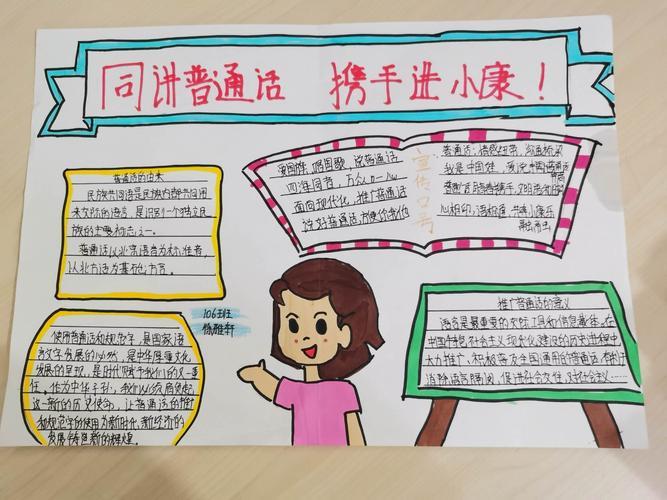 同讲普通话 携手进小康！
普通话的由来
民族共同语是民族内部共同用
来交际的语言，是识别一个独立民
族的主要标志之一。
普通话以北京语音为标准音，
以北方话为基础方言。
爱国旗，唱国歌，说普通话
四海同音，万众一心
面向现代化，推广普通话
说好普通话，方便你我他
宣传口号
普通话：情感的纽带，沟通的桥梁
我是中国娃，爱说普通话
普通话
心相印，语相通，共建小康乐
融融
106班
使用普通话和规范字，是国家语
言文字发展的必然，是中华厚重文化
发展的呈现，是时代赋予我们的又一重
任，作为中华子孙，我们必须肩负起
这一新的历史使命，让普通话的推广
和规范字的使用为新时代，新经济的
发展铸造新的辉煌。
推广普通话的意义
语言是最重要的交际工具和信息载体。在
中国特色社会主义现代化建设的历史进程中
大力推广、积极普及全国通用的普通话，有利于
消除语言隔阂，促进社会交往，对社会主义……